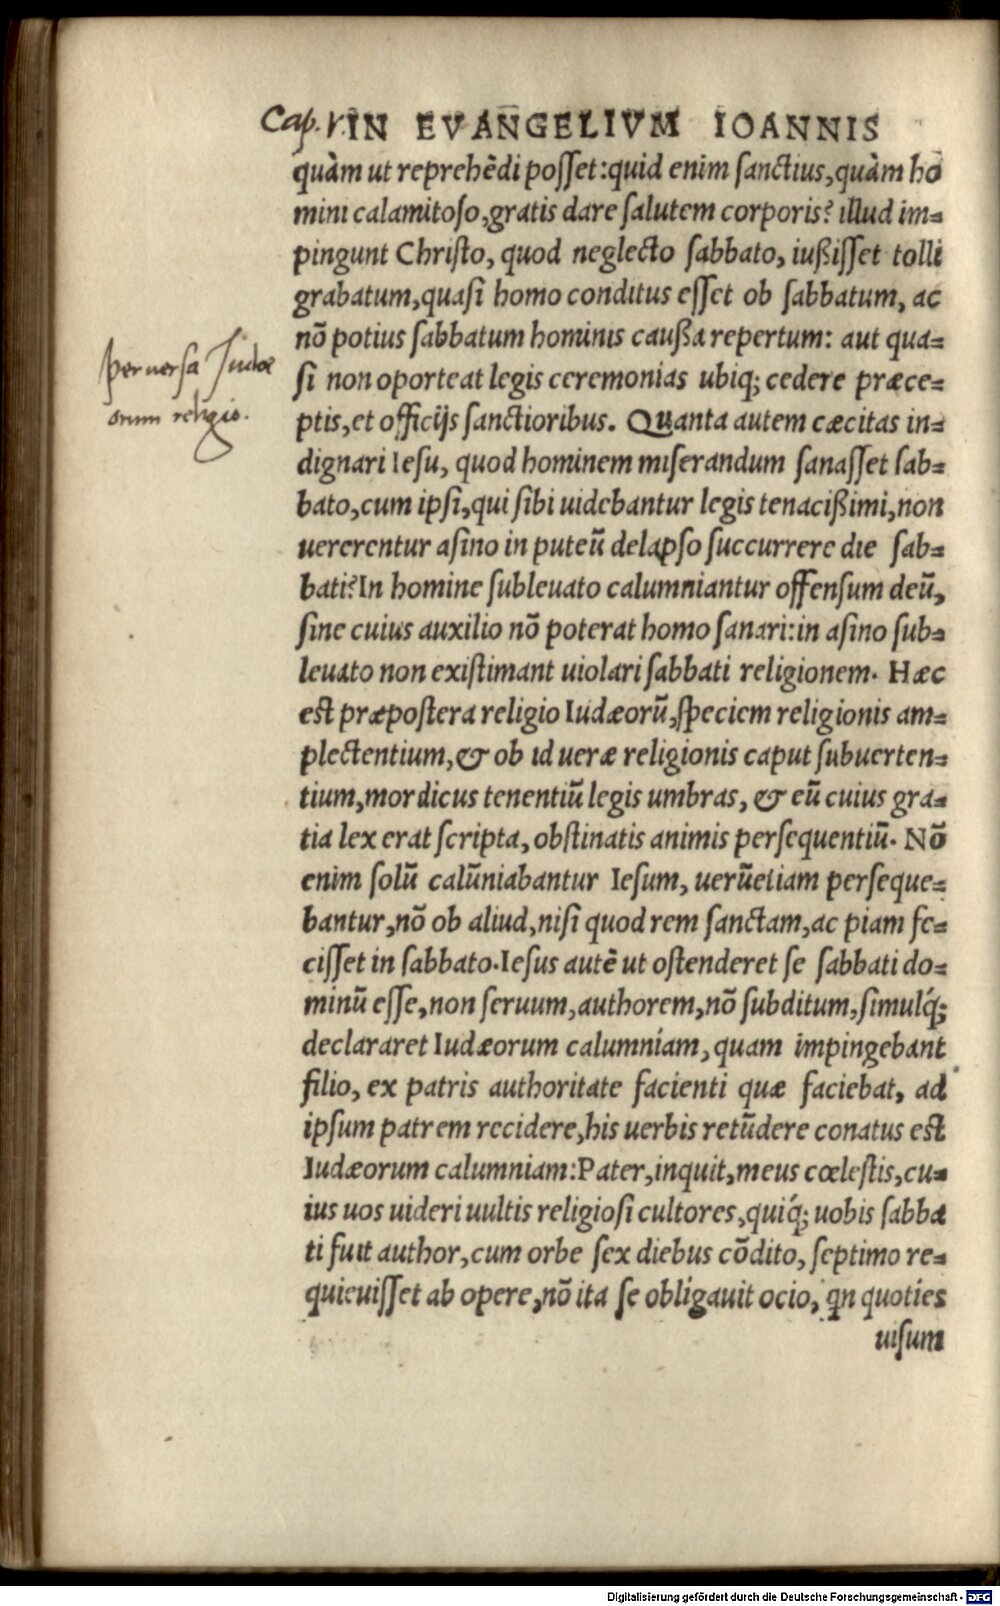 Cap. V. IN EVANGELIVM IOANNIS
quàm ut reprehēdi posset: quid enim sanctius, quàm ho
mini calamitoso, gratis dare salutem corporis? illud im-
pingunt Christo, quod neglecto sabbato, iußisset tolli
grabatum, quasi homo conditus esset ob sabbatum, ac
nō potius sabbatum hominis caußa repertum: aut qua-
si non oporteat legis ceremonias ubiq; cedere præce-
ptis, et officijs sanctioribus. Quanta autem cæcitas in-
dignari Iesu, quod hominem miserandum sanasset sab-
bato, cum ipsi, qui sibi uidebantur legis tenacißimi, non
uererentur asino in puteū delapso succurrere die sab-
bati? In homine subleuato calumniantur offensum deū,
sine cuius auxilio nō poterat homo sanari: in asino sub-
leuato non existimant uiolari sabbati religionem. Hæc
est præpostera religio Iudæorū, speciem religionis am-
plectentium, & ob id ueræ religionis caput subuerten-
tium, mordicus tenentiū legis umbras, & eū cuius gra-
tia lex erat scripta, obstinatis animis persequentiū. Nō
enim solū calūniabantur Iesum, uerūetiam perseque-
bantur, nō ob aliud, nisi quod rem sanctam, ac piam fe-
cisset in sabbato. Iesus autē ut ostenderet se sabbati do-
minū esse, non seruum, authorem, nō subditum, simulq́;
declararet Iudæorum calumniam, quam impingebant
filio, ex patris authoritate facienti quæ faciebat, ad
ipsum patrem recidere, his uerbis retūdere conatus est
Iudæorum calumniam: Pater, inquit, meus cœlestis, cu-
ius uos uideri uultis religiosi cultores, quiq́; uobis sabba
ti fuit author, cum orbe sex diebus cōdito, septimo re-
quieuisset ab opere, nō ita se obligauit ocio, qn quoties
uisum
peruersa Iudæ
orum religio.
Digitalisierung gefördert durch die Deutsche Forschungsgemeinschaft - DFG